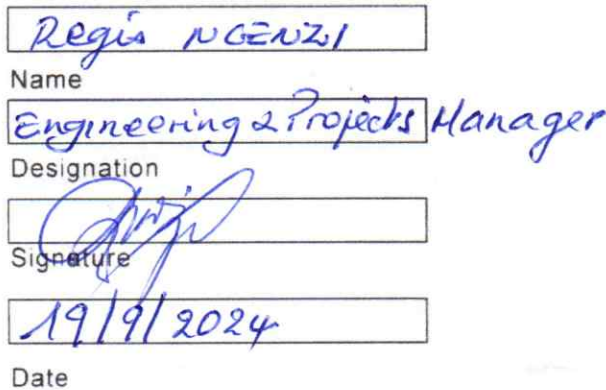 Regis NGENZI
Name
Engineering & Projects Manager
Designation
Signature
19/9/2024
Date